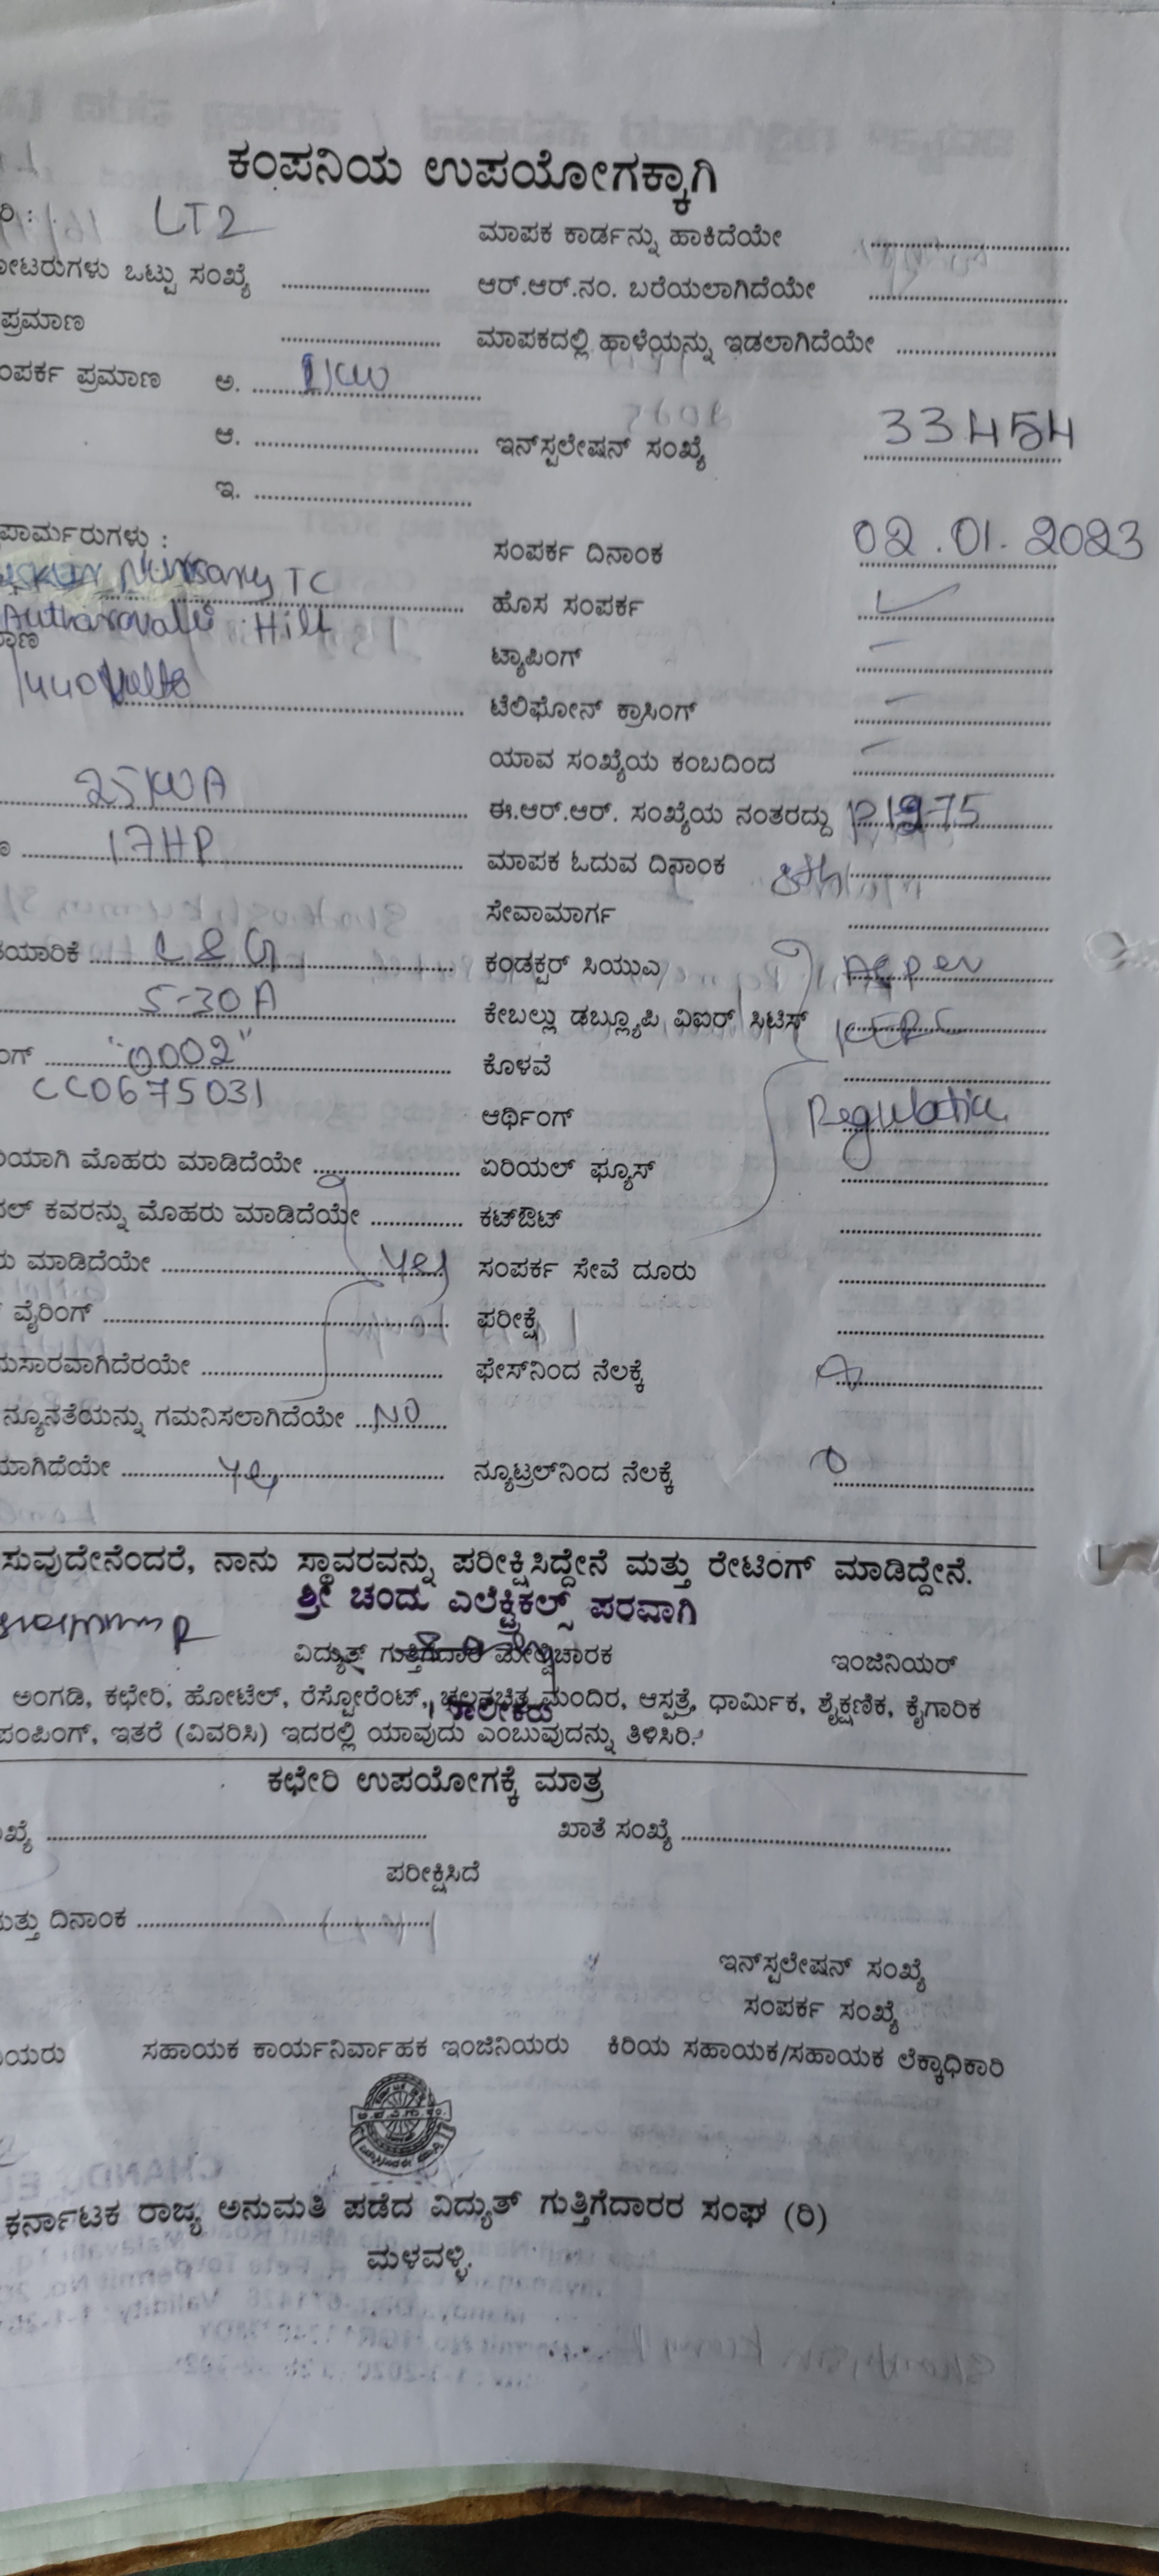 ಕಂಪನಿಯ ಉಪಯೋಗಕ್ಕಾಗಿ
ರಿ : LT2 ಮಾಪಕ ಕಾರ್ಡನ್ನು ಹಾಕಿದೆಯೇ
ೋಟರುಗಳು ಒಟ್ಟು ಸಂಖ್ಯೆ ಆರ್.ಆರ್.ನಂ. ಬರೆಯಲಾಗಿದೆಯೇ
ಪ್ರಮಾಣ ಮಾಪಕದಲ್ಲಿ ಹಾಳೆಯನ್ನು ಇಡಲಾಗಿದೆಯೇ
ಂಪರ್ಕ ಪ್ರಮಾಣ ಅ. 1KW
ಆ. ಇನ್‌ಸ್ಟಲೇಷನ್ ಸಂಖ್ಯೆ 33454
ಇ.
ಪಾರ್ಮರುಗಳು : ಸಂಪರ್ಕ ದಿನಾಂಕ 02.01.2023
Nursary TC ಹೊಸ ಸಂಪರ್ಕ ✓
Hill ಟ್ಯಾಪಿಂಗ್ –
ಮಾಣ
/440 Volts ಟೆಲಿಫೋನ್ ಕ್ರಾಸಿಂಗ್ –
ಯಾವ ಸಂಖ್ಯೆಯ ಕಂಬದಿಂದ –
25KVA ಈ.ಆರ್.ಆರ್. ಸಂಖ್ಯೆಯ ನಂತರದ್ದು
17HP ಮಾಪಕ ಓದುವ ದಿನಾಂಕ 8th
ಸೇವಾಮಾರ್ಗ
ತಯಾರಿಕೆ L&G ಕಂಡಕ್ಟರ್ ಸಿಯುಎ As per
5-30A ಕೇಬಲ್ಲು ಡಬ್ಲ್ಯೂಪಿ ವಿಐರ್ ಸಿಟಿಸ್ KERC
ಂಗ್ "0002" ಕೊಳವೆ
CC0675031 ಆರ್ಥಿಂಗ್ Regulation
ಿಯಾಗಿ ಮೊಹರು ಮಾಡಿದೆಯೇ ಏರಿಯಲ್ ಫ್ಯೂಸ್
ನಲ್ ಕವರನ್ನು ಮೊಹರು ಮಾಡಿದೆಯೇ ಕಟ್‌ಔಟ್
ು ಮಾಡಿದೆಯೇ Yes ಸಂಪರ್ಕ ಸೇವೆ ದೂರು
ವೈರಿಂಗ್ ಪರೀಕ್ಷೆ
ನುಸಾರವಾಗಿದೆರಯೇ ಫೇಸ್‌ನಿಂದ ನೆಲಕ್ಕೆ
ನ್ಯೂನತೆಯನ್ನು ಗಮನಿಸಲಾಗಿದೆಯೇ NO
ಮಾಗಿದೆಯೇ Yes ನ್ಯೂಟ್ರಲ್‌ನಿಂದ ನೆಲಕ್ಕೆ 0
ಸುವುದೇನೆಂದರೆ, ನಾನು ಸ್ಥಾವರವನ್ನು ಪರೀಕ್ಷಿಸಿದ್ದೇನೆ ಮತ್ತು ರೇಟಿಂಗ್ ಮಾಡಿದ್ದೇನೆ.
ಶ್ರೀ ಚಂದು ಎಲೆಕ್ಟ್ರಿಕಲ್ಸ್ ಪರವಾಗಿ
ವಿದ್ಯುತ್ ಗುತ್ತಿಗೆದಾರ ಮೇಲ್ವಿಚಾರಕ ಇಂಜಿನಿಯರ್
ಅಂಗಡಿ, ಕಛೇರಿ, ಹೋಟೆಲ್, ರೆಸ್ಟೋರೆಂಟ್, ಚಲನಚಿತ್ರ ಮಂದಿರ, ಆಸ್ಪತ್ರೆ, ಧಾರ್ಮಿಕ, ಶೈಕ್ಷಣಿಕ, ಕೈಗಾರಿಕ
ಮಾಲೀಕರು
ಪಂಪಿಂಗ್, ಇತರೆ (ವಿವರಿಸಿ) ಇದರಲ್ಲಿ ಯಾವುದು ಎಂಬುವುದನ್ನು ತಿಳಿಸಿರಿ.
ಕಛೇರಿ ಉಪಯೋಗಕ್ಕೆ ಮಾತ್ರ
ಖ್ಯೆ ಖಾತೆ ಸಂಖ್ಯೆ
ಪರೀಕ್ಷಿಸಿದೆ
ಮತ್ತು ದಿನಾಂಕ
ಇನ್‌ಸ್ಟಲೇಷನ್ ಸಂಖ್ಯೆ
ಸಂಪರ್ಕ ಸಂಖ್ಯೆ
ಿಯರು ಸಹಾಯಕ ಕಾರ್ಯನಿರ್ವಾಹಕ ಇಂಜಿನಿಯರು ಕಿರಿಯ ಸಹಾಯಕ/ಸಹಾಯಕ ಲೆಕ್ಕಾಧಿಕಾರಿ
ಕರ್ನಾಟಕ ರಾಜ್ಯ ಅನುಮತಿ ಪಡೆದ ವಿದ್ಯುತ್ ಗುತ್ತಿಗೆದಾರರ ಸಂಘ (ರಿ)
ಮಳವಳ್ಳಿ.